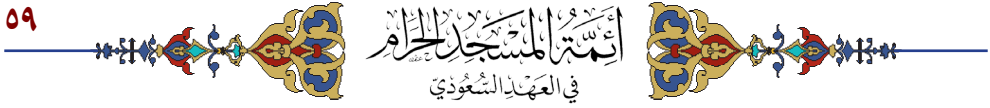 ٥٩
أَئِمَّةُ المَسْجِدِ الحَرَامِ
في العَهْدِ السُّعُودِيّ